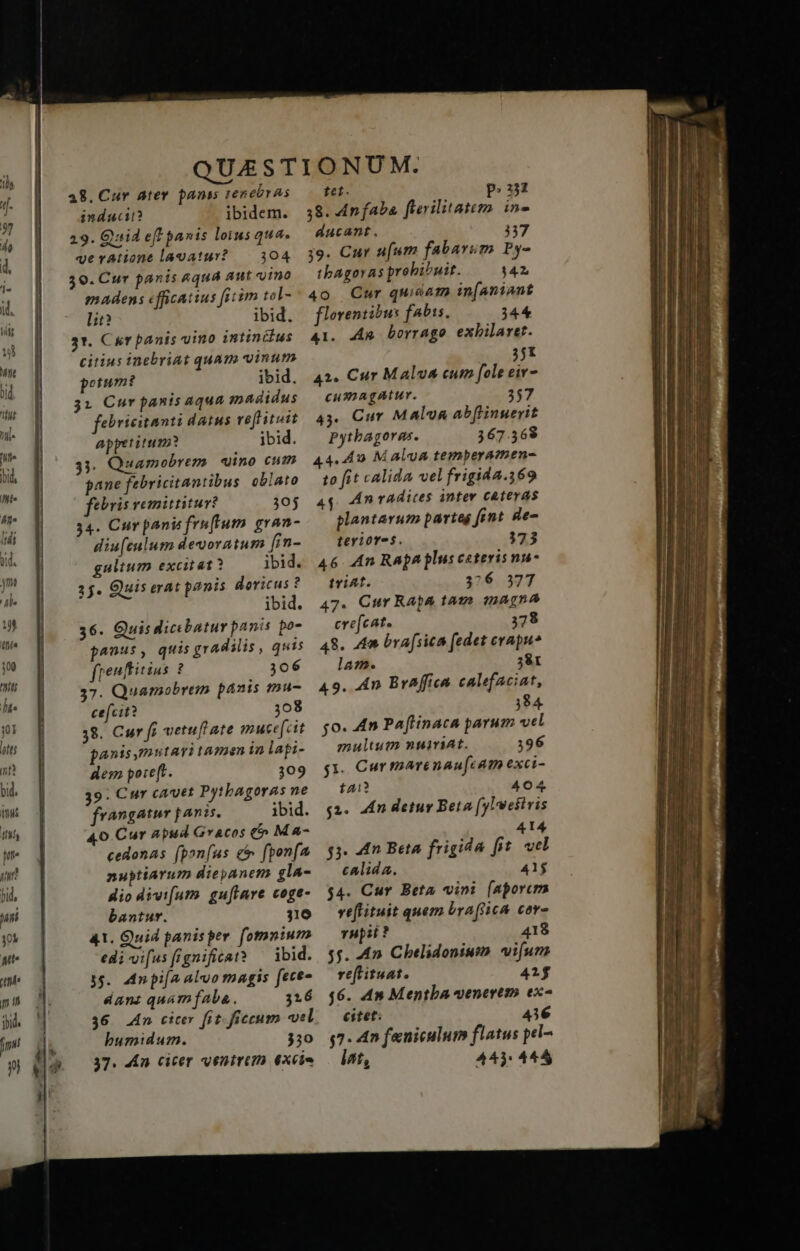 QUÆSTIONUM.
28. Cur ater panis tenebras
inducit? ibidem.
29. Quid est panis lotus qua-
ve ratione lavatur? 304
30. Cur panis aqua aut vino
madens efficatius sitim tol-
lit? ibid.
31. Cur panis vino intinctus
citius inebriat quam vinum
potum? ibid.
32 Cur panis aqua madidus
febricitanti datus restituit
appetitum? ibid.
33. Quamobrem vino cum
pane febricitantibus oblato
febris remittitur? 305
34. Cur panis frustum gran-
diusculum devoratum sin-
gultum excitat? ibid.
35. Quis erat panis doricus?
ibid.
36. Quis dicebatur panis po-
panus, quis gradilis, quis
speustitius? 306
37. Quamobrem panis mu-
cescit? 308
38. Cur si vetustate mucescit
panis, mutari tamen in lapi-
dem potest. 309
39. Cur cavet Pythagoras ne
frangatur panis. ibid.
40 Cur apud Græcos & Ma-
cedonas sponsus & sponsa
nuptiarum die panem gla-
dio divisum gustare coge-
bantur. 310
41. Quid panis per somnium
edi visus significat? ibid.
35. An pisa alvo magis fece-
dant quam faba. 326
36 An cicer sit siccum vel
humidum. 330
37. An cicer ventrem excie
tet. p. 332
38. An faba sterilitatem in-
ducant. 337
39. Cur usum fabarum Py-
thagoras prohibuit. 342
40 Cur quidam insaniant
florentibus fabis. 344
41. An borrago exhilaret.
351
42. Cur Malva cum sole cir-
cumagatur. 357
43. Cur Malva abstinuerit
Pythagoras. 367.368
44. An Malva temperamen-
to sit calida vel frigida. 369
45 An radices inter cæteras
plantarum partes sint de-
teriores. 373
46 An Rapa plus cæteris nu-
triat. 376 377
47. Cur Rapa tam magna
crescat. 378
48. An brassica sedet crapu-
lam. 381
49. An Brassica calefaciat,
384
50. An Pastinaca parum vel
multum nutriat. 396
51. Cur mare nauseam exci-
tat? 404
52. An detur Beta sylvestris
414
53. An Beta frigida sit vel
calida. 415
54. Cur Beta vini saporem
restituit quem brassica cor-
rupit? 418
55. An Chelidonium visum
restituat. 425
56. An Mentha venerem ex-
citet: 436
57. An fœniculum flatus pel-
lat, 443. 444